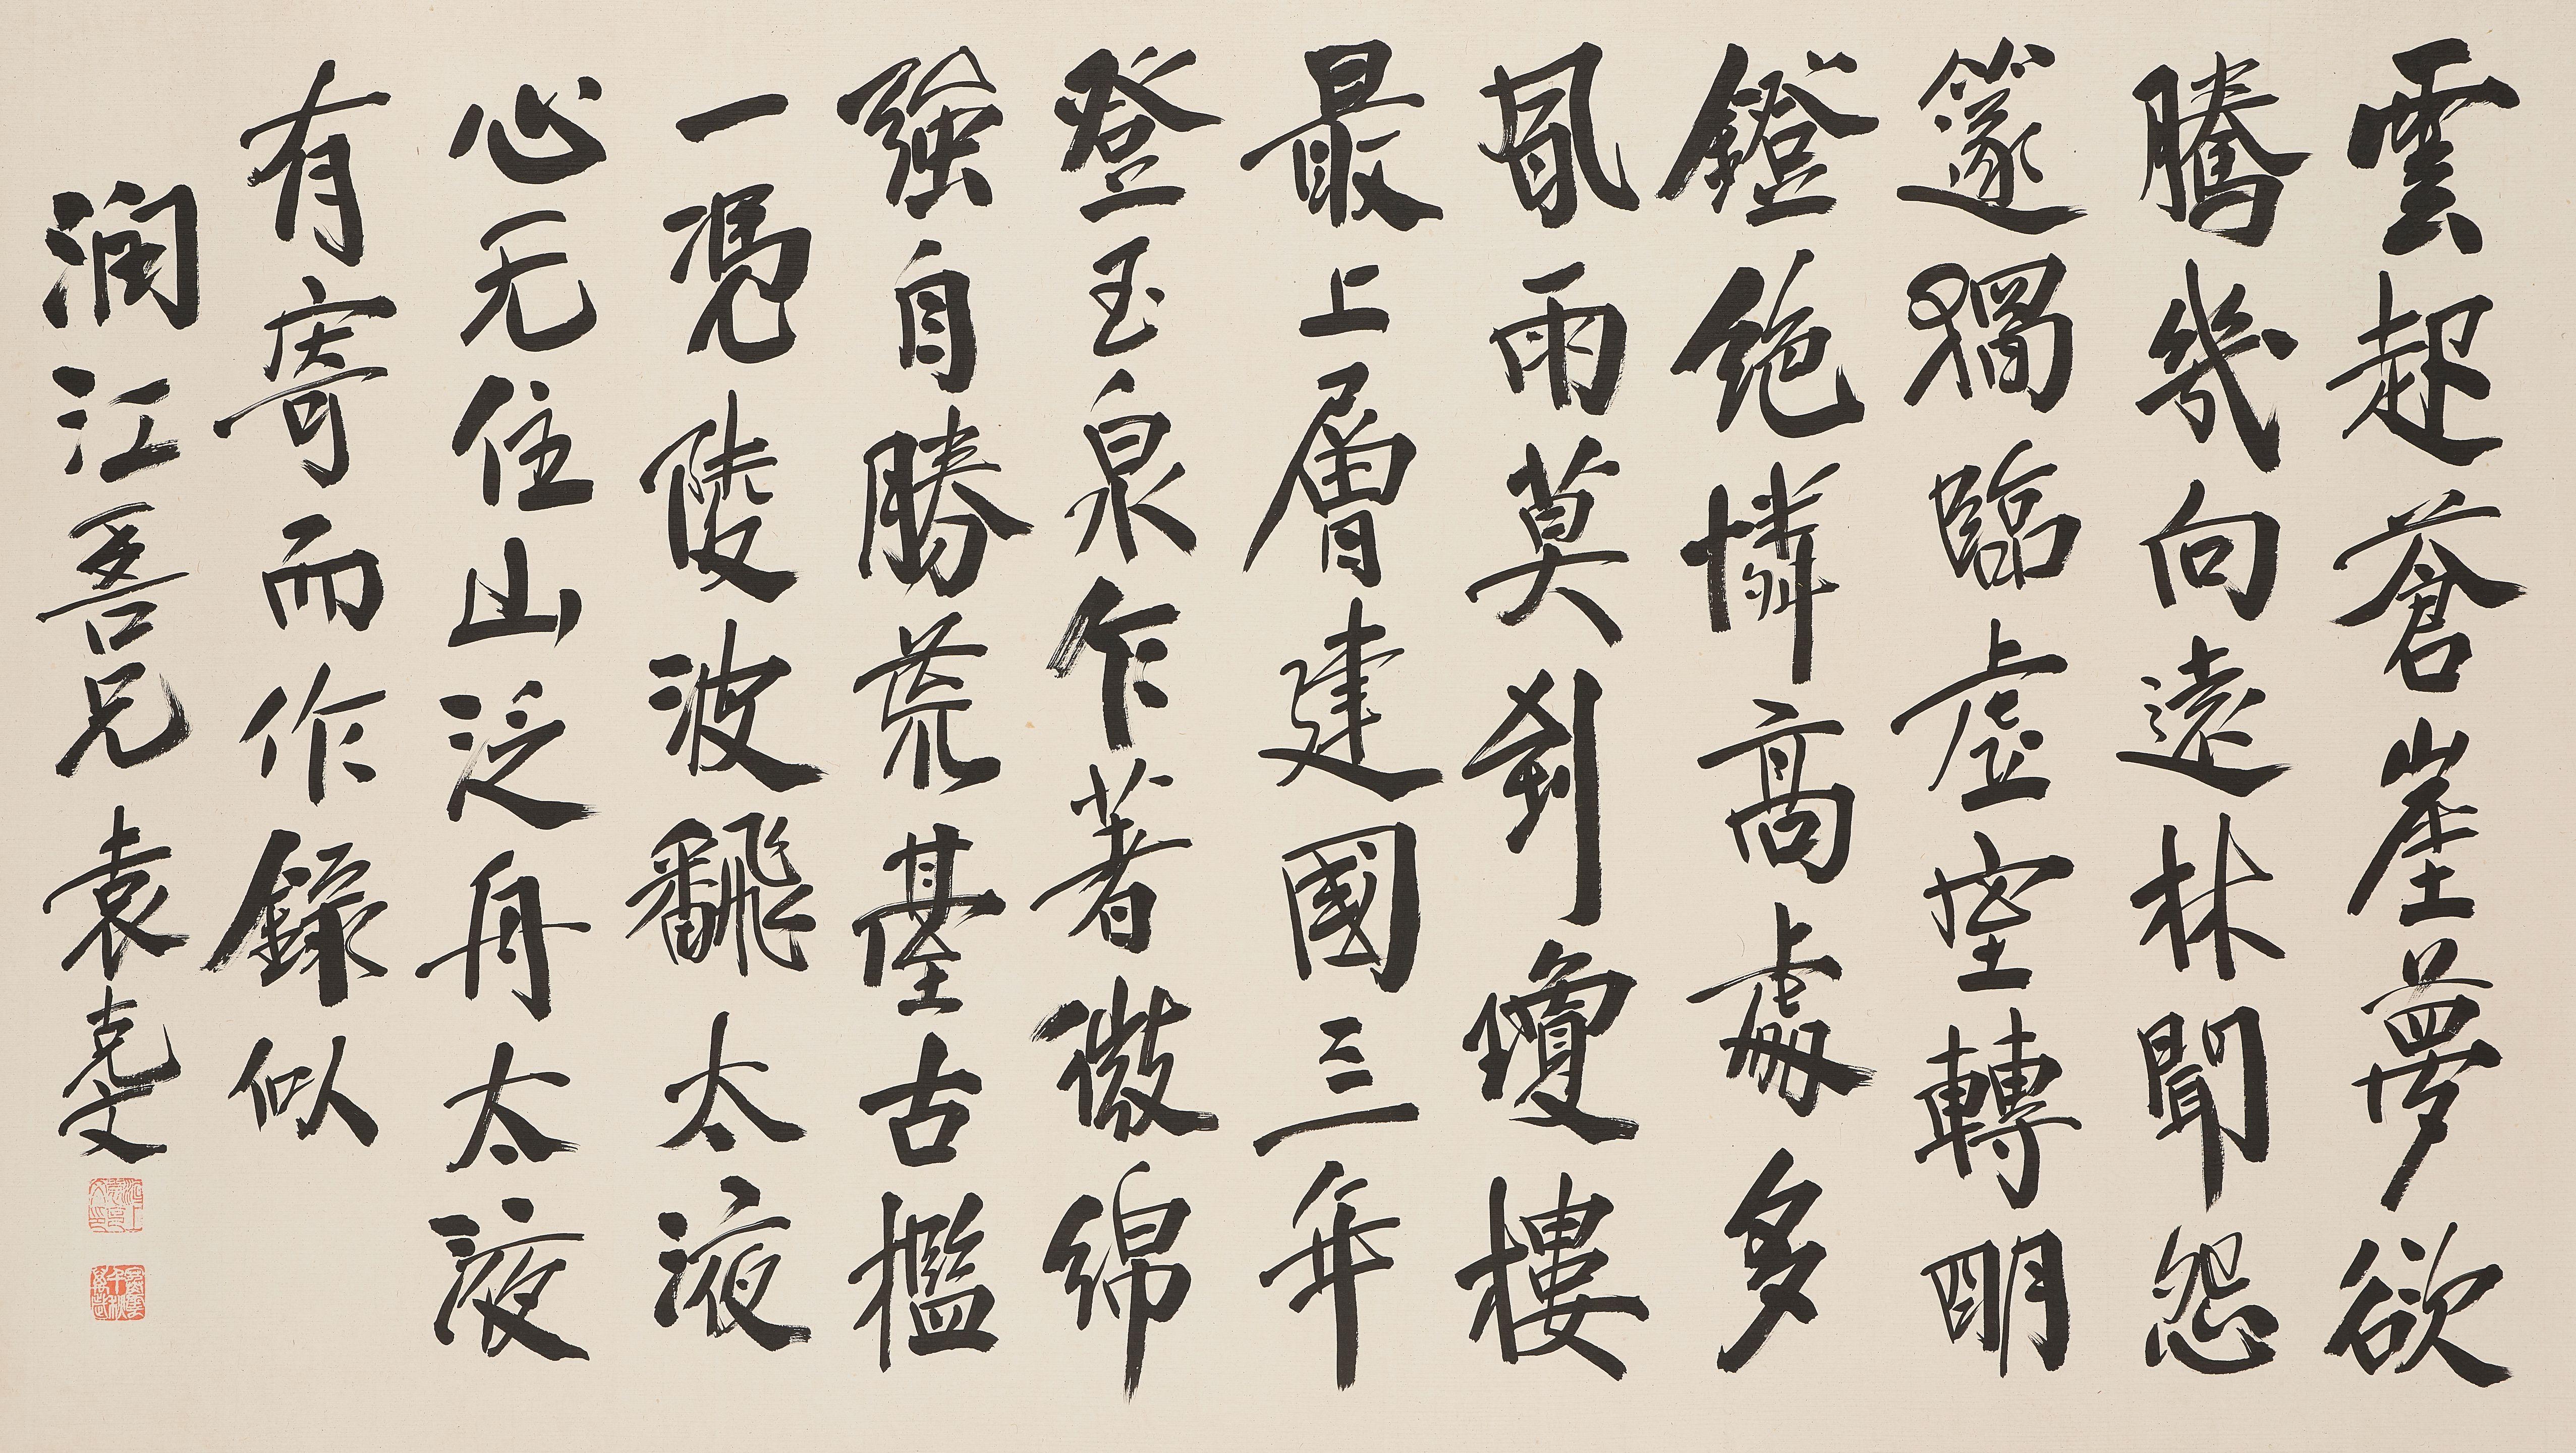 雲起蒼崖夢欲
騰幾向遠林聞怨
篴獨臨虛室轉明
鐙絕憐高處多
風雨莫到瓊樓
最上層建國三年
登玉泉乍著微綿
強自勝荒臺古檻
一憑陵波飜太液
心无住山泛舟太液
有寄而作錄似
潤江吾兄 袁克文